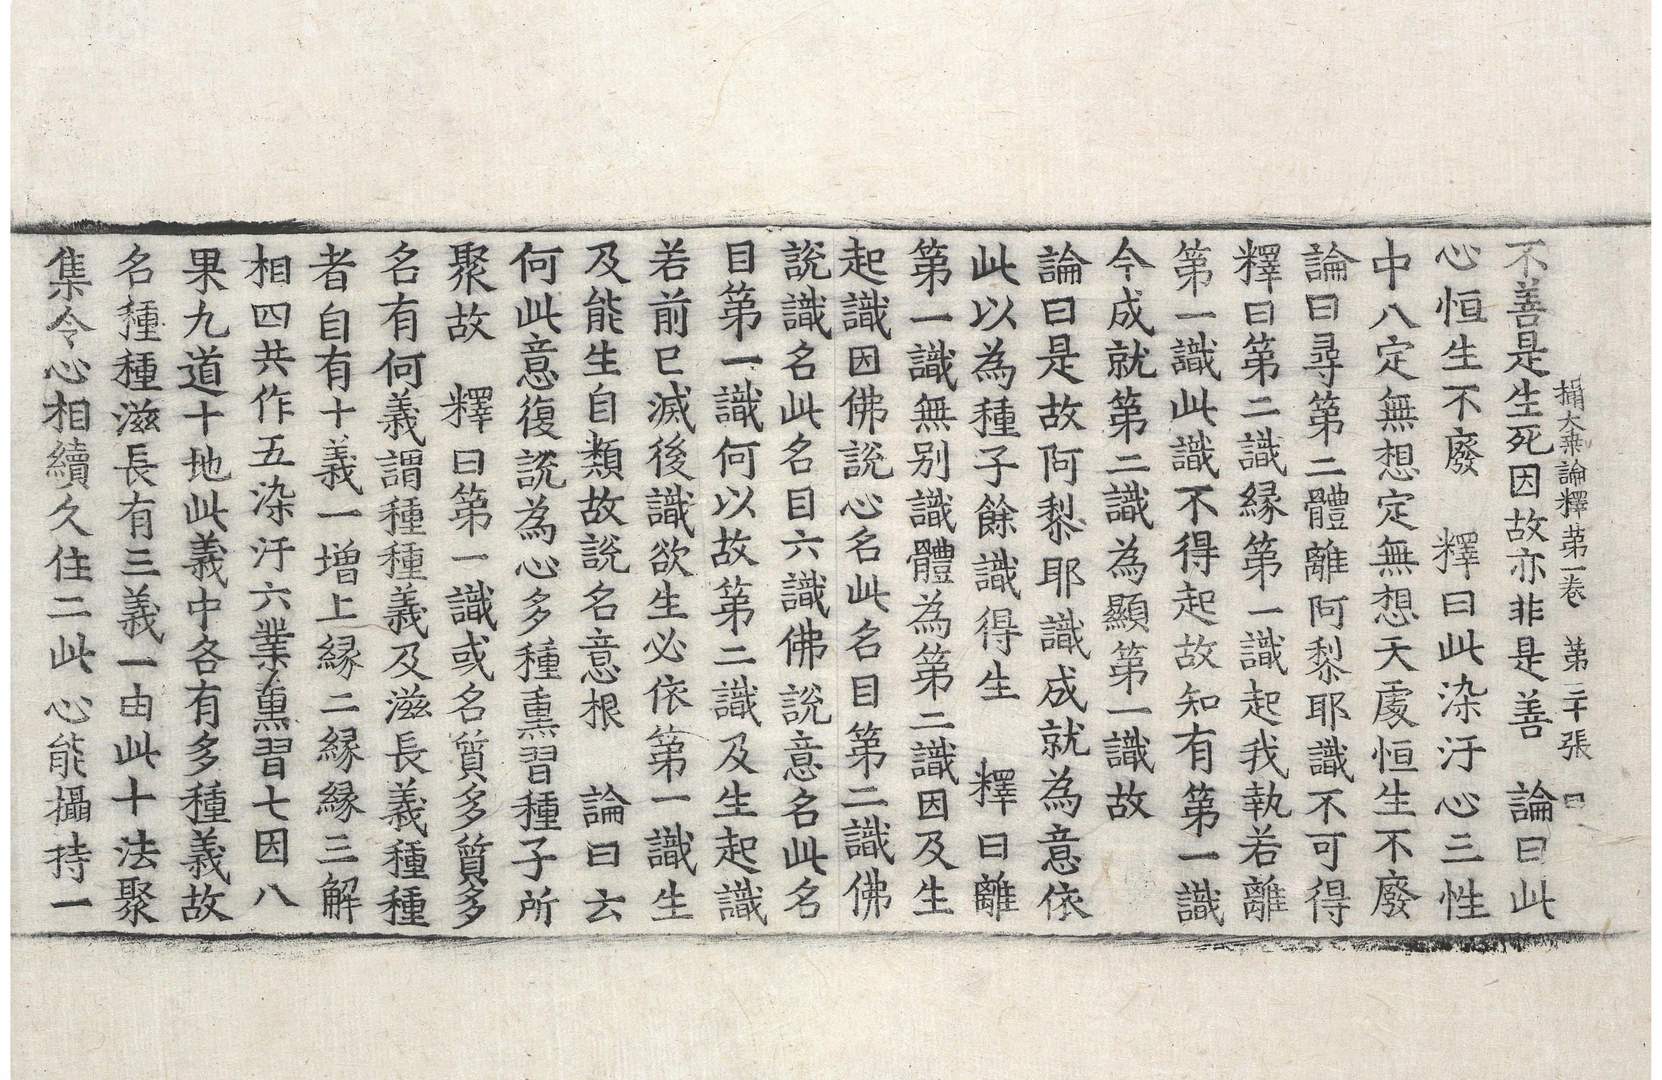 攝大乘論釋第一卷 第二十張
不善是生死因故亦非是善 論曰此
心恒生不廢 釋曰此染汙心三性
中八定無想定無想天處恒生不廢
論曰尋第二體離阿黎耶識不可得
釋曰第二識緣第一識起我執若離
第一識此識不得起故知有第一識
今成就第二識為顯第一識故
論曰是故阿黎耶識成就為意依
此以為種子餘識得生 釋曰離
第一識無別識體為第二識因及生
起識因佛說心名此名目第二識佛
說識名此名目六識佛說意名此名
目第一識何以故第二識及生起識
若前已滅後識欲生必依第一識生
及能生自類故說名意根 論曰云
何此意復說為心多種熏習種子所
聚故 釋曰第一識或名質多質多
名有何義謂種種義及滋長義種種
者自有十義一增上緣二緣緣三解
相四共作五染汙六業熏習七因八
果九道十地此義中各有多種義故
名種種滋長有三義一由此十法聚
集令心相續久住二此心能攝持一